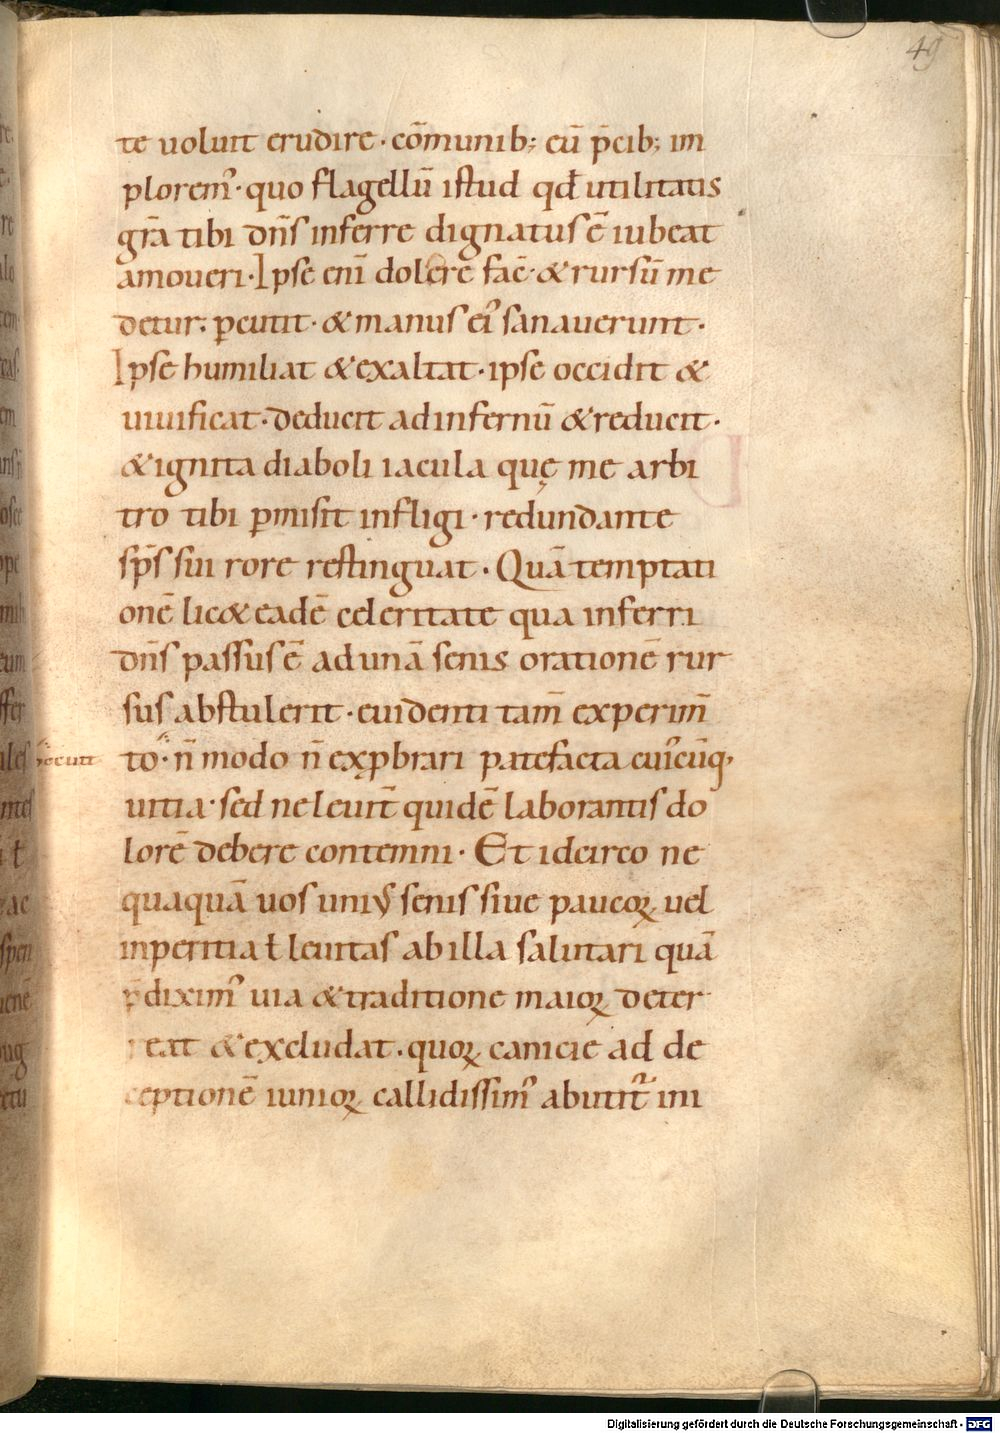 49
te uoluit erudire · cōmunib; eū p̄cib; im
plorem᾽ · quo flagellū istud qđ utilitatis
gr̄a tibi dn̄s inferre dignatus ē iubeat
amoueri · Ipse enī dolere fac̄ · & rursū me
detur; ꝑcutit · & manus ei᾽ sanauerunt ·
Ipse humiliat & exaltat · ipse occidit &
uiuificat · deducit ad infernū & reducit ·
& ignita diaboli iacula quę me arbi
tro tibi ꝑmisit infligi · redundante
sp̄s sui rore restinguat · Quā temptati
onē lic& eadē celeritate qua inferri
dn̄s passus ē ad unā senis orationē rur
sus abstulerit · euidenti tam̄ experim̄
to · n̄ modo n̄ exꝓbrari patefacta cui᾽cūq,
uitia · sed ne leuit̄ quidē laborantis do
lorē debere contemni · Et idcirco ne
quaquā uos uni᾽ senis siue paucoꝝ uel
inperitia ł leuitas ab illa salutari quā
p̄dixim᾽ uia & traditione maioꝝ deter
reat & excludat · quoꝝ canicie ad de
ceptionē iunioꝝ callidissim᾽ abutit᷑ ini
Digitalisierung gefördert durch die Deutsche Forschungsgemeinschaft - DFG